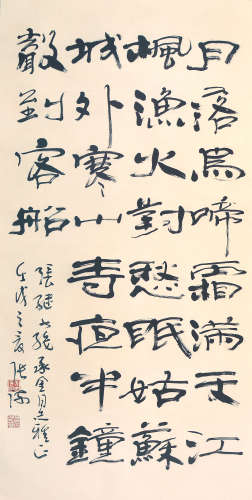 月落烏啼霜滿天江
楓漁火對愁眠姑蘇
城外寒山寺夜半鐘
聲到客船
張繼七絕承同志雅正
壬戌之夏張